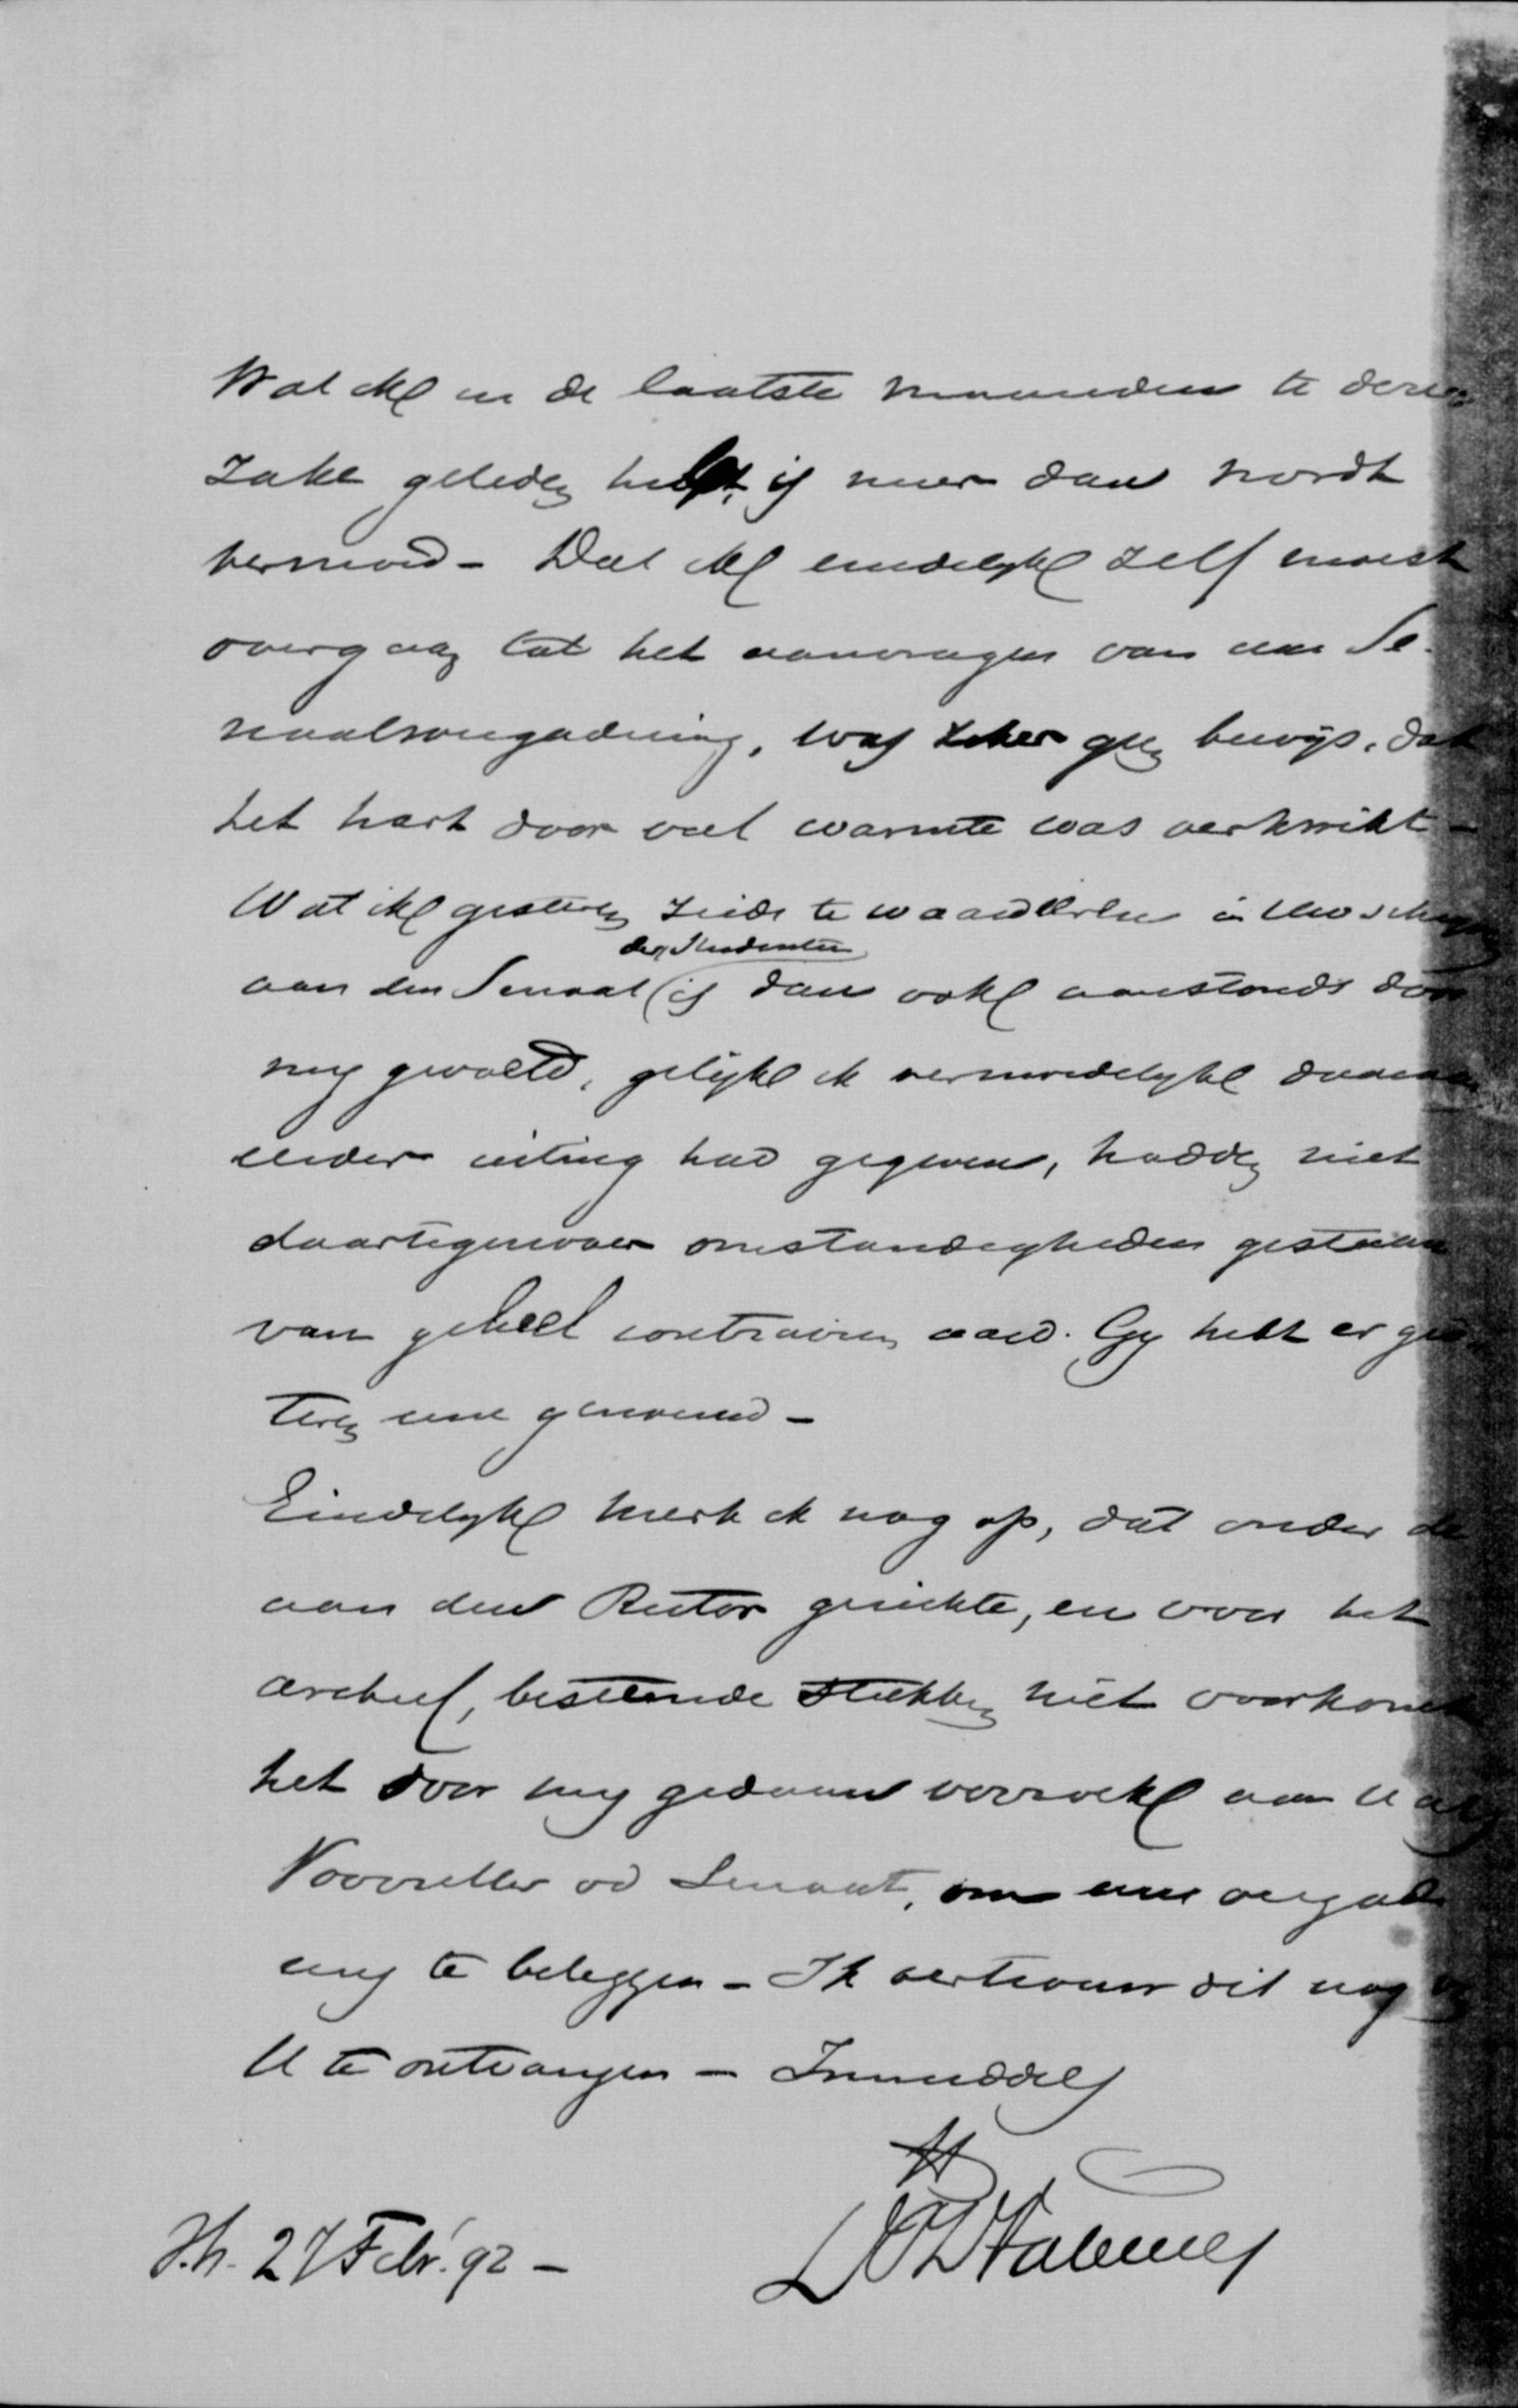 Wat ik in de laatste maanden te dezer
zake geleden heb, is meer dan wordt
vermoed - Dat ik eindelijk zelf moest
overgaan tot het aanvragen van een Se-
naatsvergadering, was zeker geen bewijs, dat
het hart door veel warmte was verkwikt -
Wat ik gisteren zeide te waardeeren in Uw schrijven
der Studenten
aan den Senaat is dan ook aanstonds door
mij gevoeld, gelijk ik vermoedelijk daaraan
eerder uiting had gegeven, hadden niet
daartegenover omstandigheden gestaan
van geheel contrairen aard. Gij hebt er gis-
teren eene genoemd -
Eindelijk merk ik nog op, dat onder de
aan den Rector gerichte, en voor het
archief, bestemde stukken niet voorkomt
het door mij gedaan verzoek aan U als
Voorzitter vd Senaat, om eene vergade
ring te beleggen - Ik vertrouw dit nog van
U te ontvangen - Inmiddels
27 Febr. '92 -